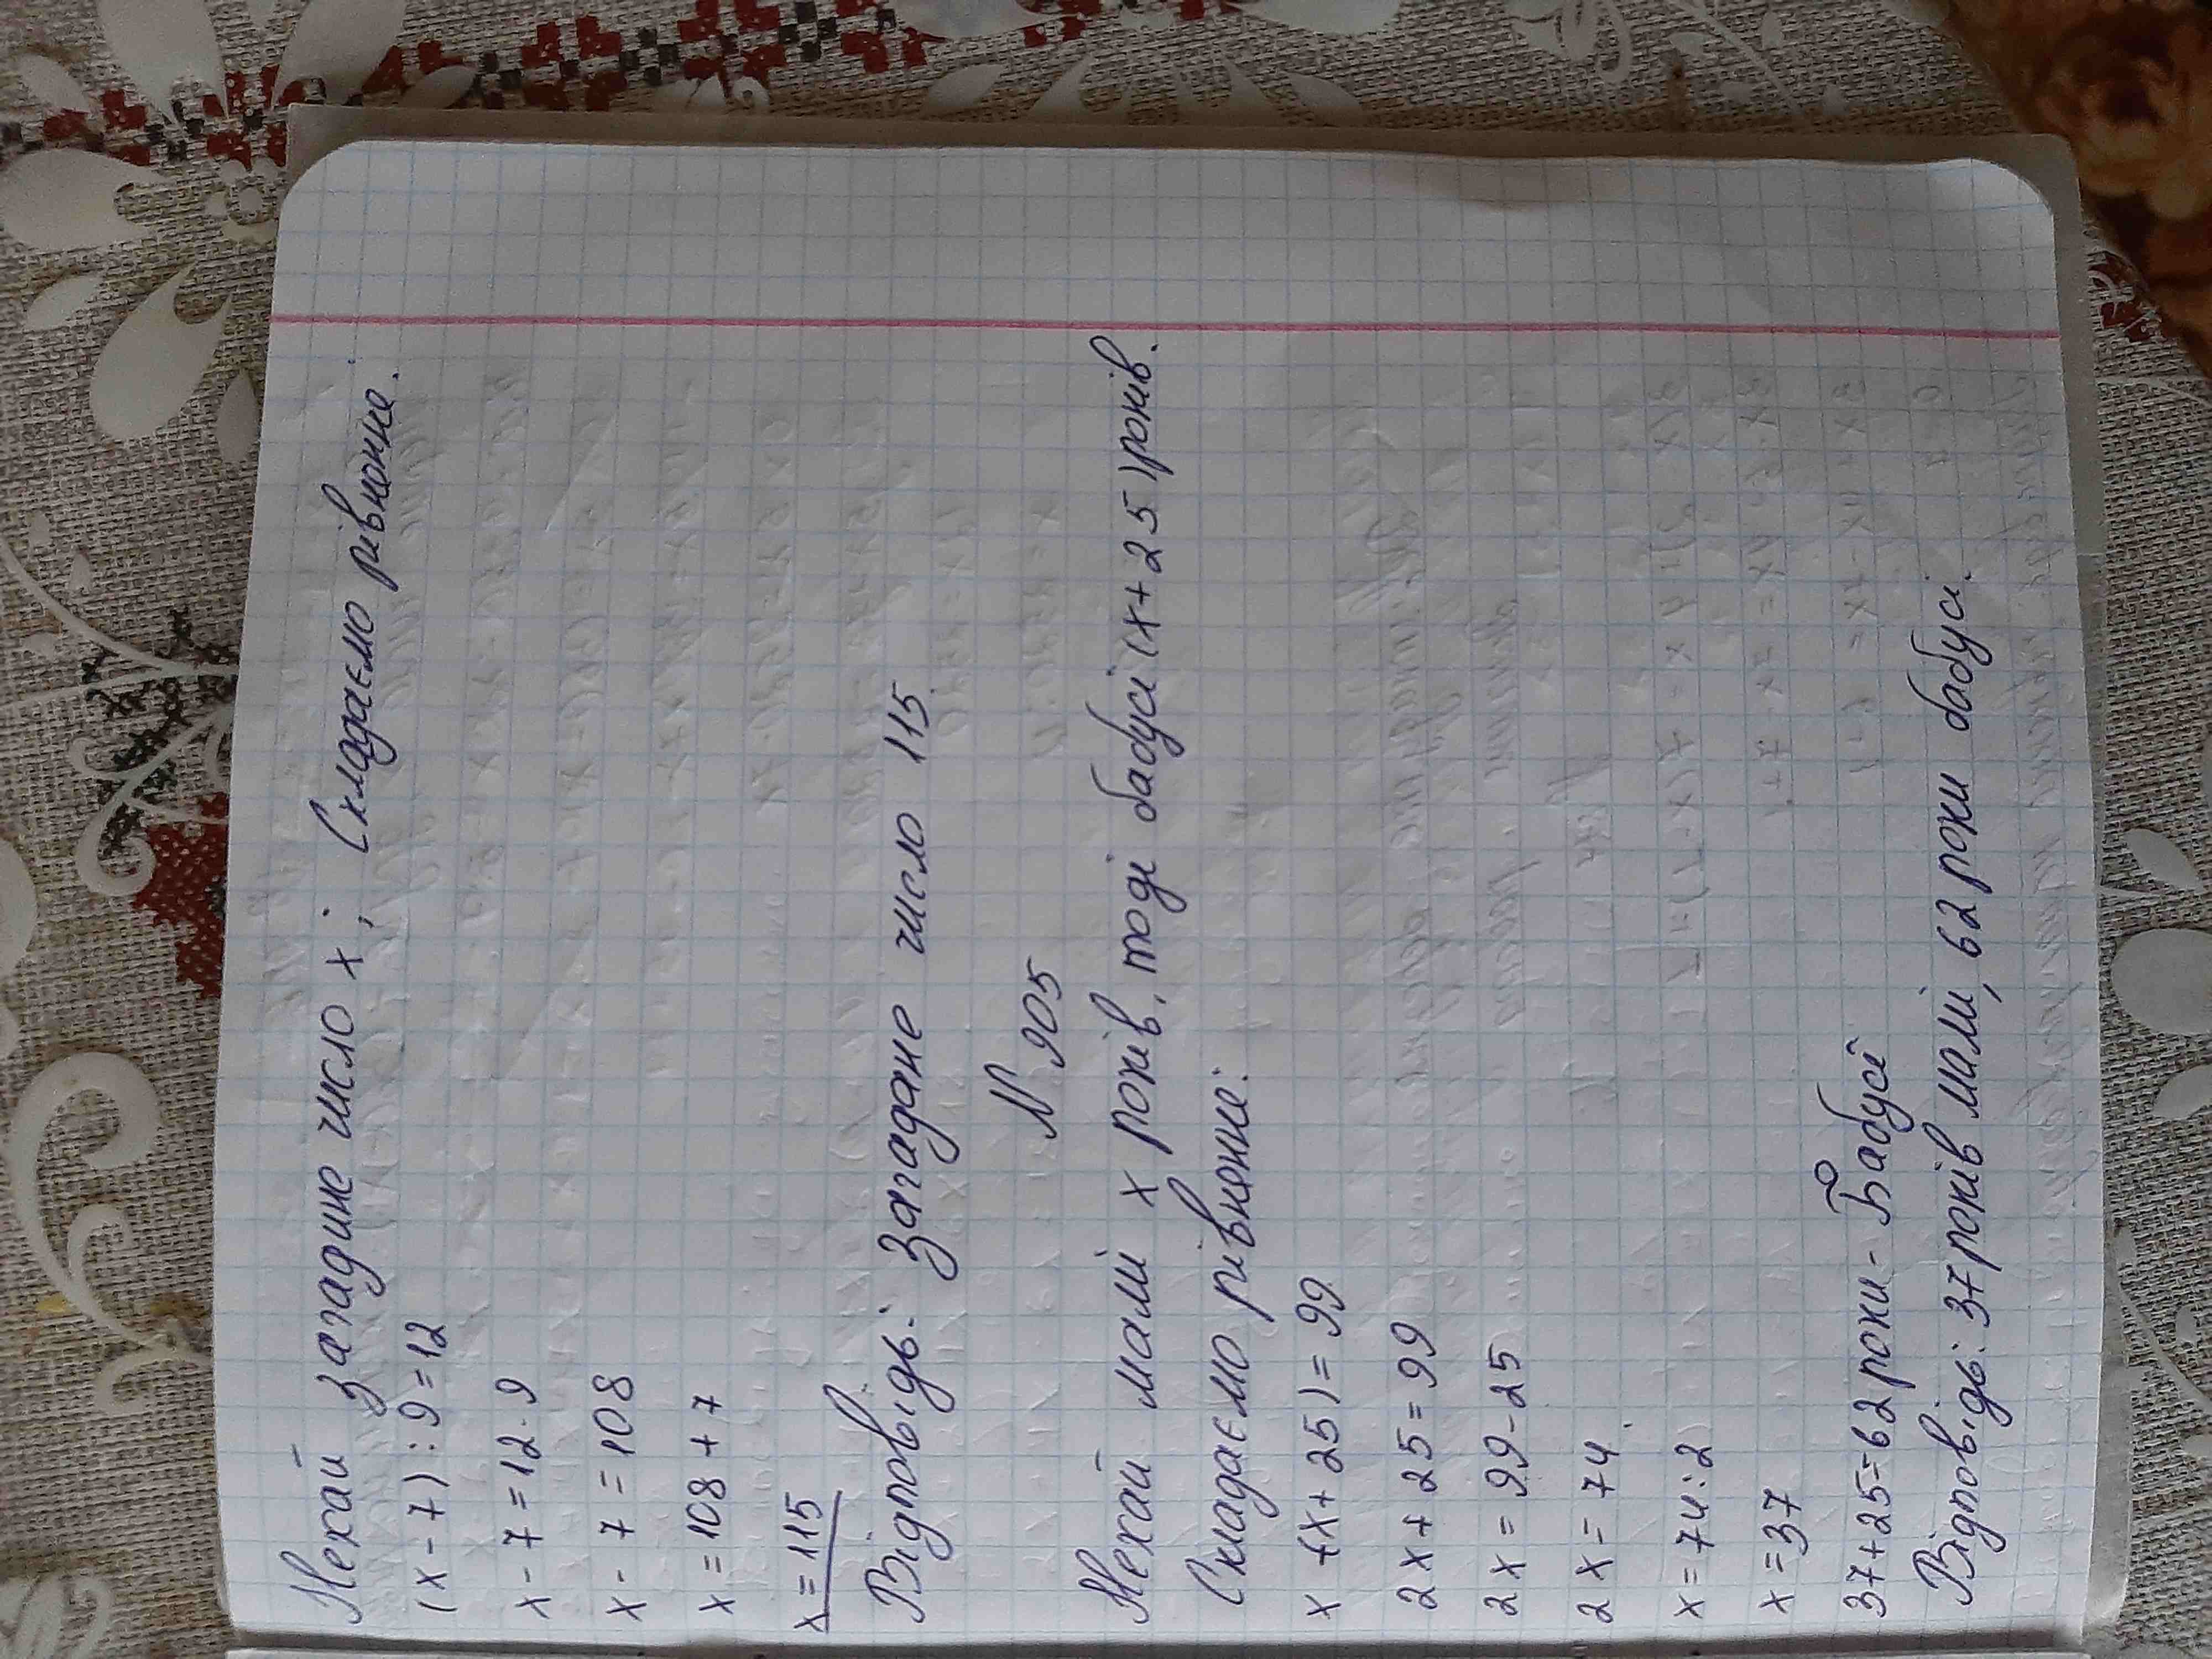 Нехай загадине число х; Складаємо рівняння.
(х - 7) : 9 = 12
х - 7 = 12 · 9
х - 7 = 108
х = 108 + 7
х = 115
Відповідь: Загадане число 115
N 905
Нехай мамі х років, тоді бабусі (х + 25) років.
Складаємо рівняння:
х + (х + 25) = 99
2х + 25 = 99
2х = 99 - 25
2х = 74
х = 74 : 2
х = 37
37 + 25 = 62 роки - Бабусі
Відповідь: 37 років мамі, 62 роки бабусі.